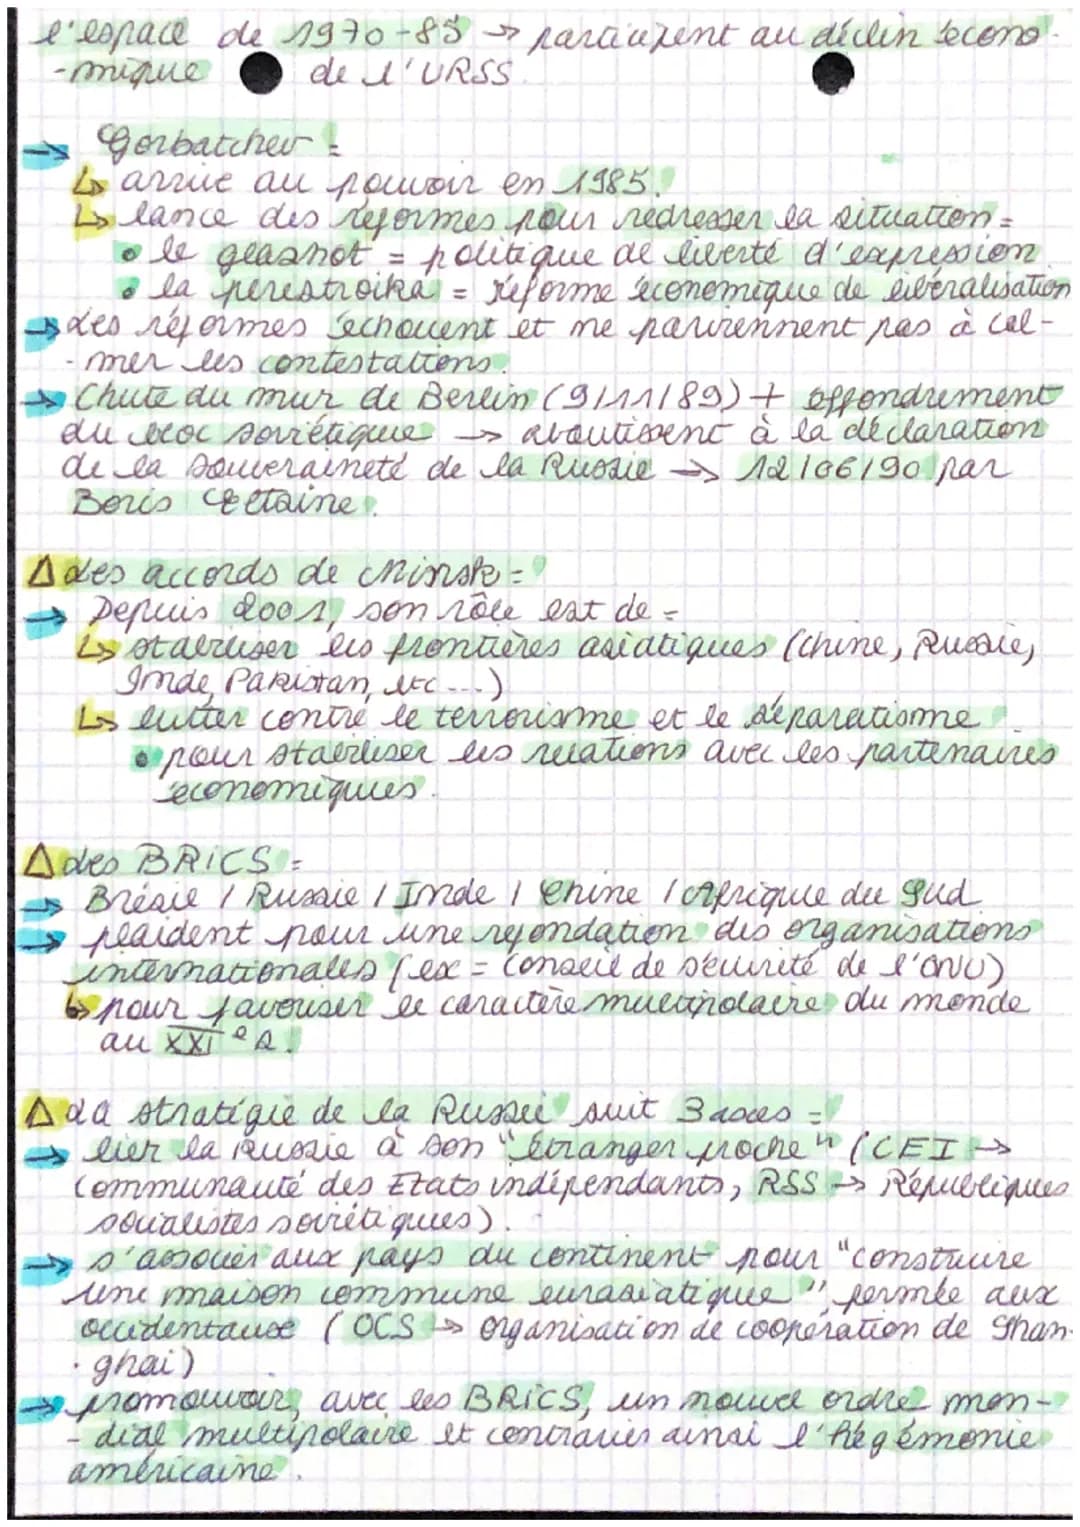 l'espace de 1970-85 → participent au déclin écono-
-mique de l'URSS.
→ Gorbatchev =
↳ arrive au pouvoir en 1985.
↳ lance des réformes pour redresser la situation =
• le glasnot = politique de liberté d'expression
• la perestroïka = réforme économique de libéralisation
→ Les réformes échouent et ne parviennent pas à cal-
-mer les contestations.
→ Chute du mur de Berlin (9/11/89) + effondrement
du bloc soviétique → aboutissent à la déclaration
de la souveraineté de la Russie → 12/06/90 par
Boris Eltsine.
Δ Les accords de Minsk =
→ Depuis 2001, son rôle est de =
↳ stabiliser les frontières asiatiques (Chine, Russie,
Inde, Pakistan, etc...)
↳ lutter contre le terrorisme et le séparatisme
• pour stabiliser les relations avec les partenaires
économiques.
Δ Les BRICS =
→ Brésil / Russie / Inde / Chine / Afrique du Sud
→ plaident pour une refondation des organisations
internationales (ex = conseil de sécurité de l'ONU)
↳ pour favoriser le caractère multipolaire du monde
au XXIe s.
Δ La stratégie de la Russie suit 3 axes =
→ lier la Russie à son "étranger proche" (CEI →
Communauté des Etats indépendants, RSS → Républiques
socialistes soviétiques).
→ s'associer aux pays du continent pour "construire
une maison commune eurasiatique" fermée aux
occidentaux (OCS → Organisation de coopération de Shan-
-ghai)
→ promouvoir, avec les BRICS, un nouvel ordre mon-
-dial multipolaire et contrarier ainsi l'hégémonie
américaine.